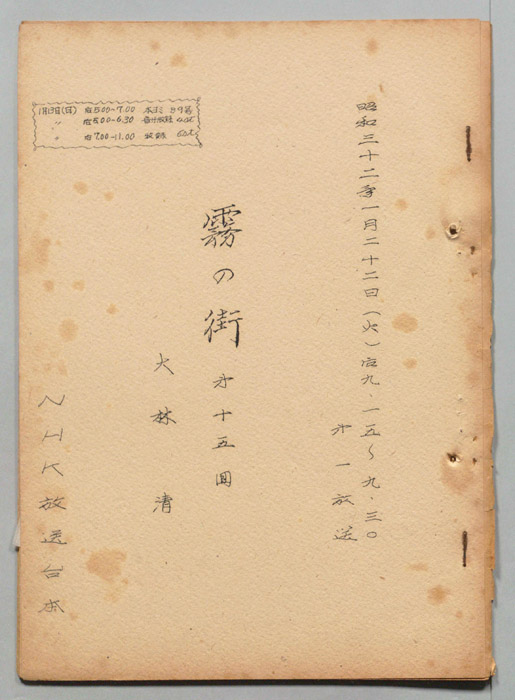 昭和三十二年一月二十二日(火)后九・一五〜九・三〇
㐧一放送
霧の街 㐧十五回
大林清
NHK放送台本
1月13日(日) 后5.00-7.00 本ヨミ
〃 后5.00-6.30
〃 后7.00-11.00 収録